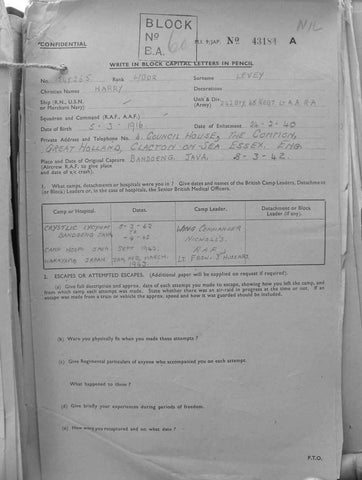 BLOCK
No
B.A. 60
M.I. 9/JAP. No 43184 A
CONFIDENTIAL
WRITE IN BLOCK CAPITAL LETTERS IN PENCIL
No. Rank Surname LEVEY
Christian Names HARRY Decorations
Ship (R.N., U.S.N. or Merchant Navy) Unit & Div. (Army)
Squadron and Command (R.A.F., A.A.F.)
Date of Birth 5-3-1916. Date of Enlistment 26-2-40
Private Address and Telephone No. 4 COUNCIL HOUSE, THE COMMON,
GREAT HOLLAND, CLACTON-ON-SEA ESSEX. ENG.
Place and Date of Original Capture BANDOENG, JAVA. 8-3-42.
(Aircrew R.A.F. to give place and date of a/c crash).
1. What camps, detachments or hospitals were you in? Give dates and names of the British Camp Leaders, Detachment
(or Block) Leaders or, in the case of hospitals, the Senior British Medical Officers.
Camp or Hospital. Dates. Camp Leader. Detachment or Block Leader (if any).
LYCEUM 8-3-42 WING COMMANDER
BANDOENG JAVA TO -4-42 NICHOLLS.
CAMP JAVA SEPT 1942. R.A.F
JAPAN MARCH 1943 LT
2. ESCAPES OR ATTEMPTED ESCAPES. (Additional paper will be supplied on request if required).
(a) Give full description and approx. date of each attempt you made to escape, showing how you left the camp, and
from which camp each attempt was made. State whether there was an air-raid in progress at the time or not. If an
escape was made from a train or vehicle the approx: speed and how it was guarded should be included.
(b) Were you physically fit when you made these attempts?
(c) Give Regimental particulars of anyone who accompanied you on each attempt.
What happened to them?
(d) Give briefly your experiences during periods of freedom.
(e) How were you recaptured and on what date?
P.T.O.